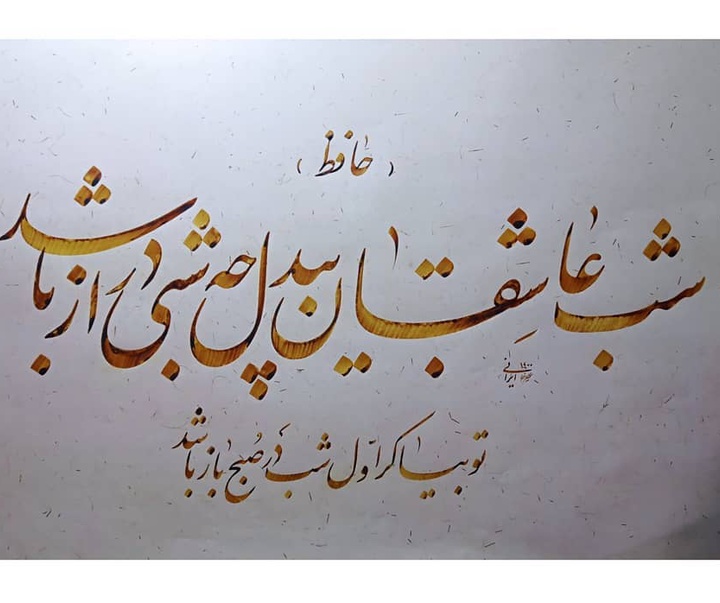 (حافظ)
شب عاشقان بیدل چه شبی دراز باشد
۱۴۰۰
ایرانی
تو بیا کز اول شب در صبح باز باشد